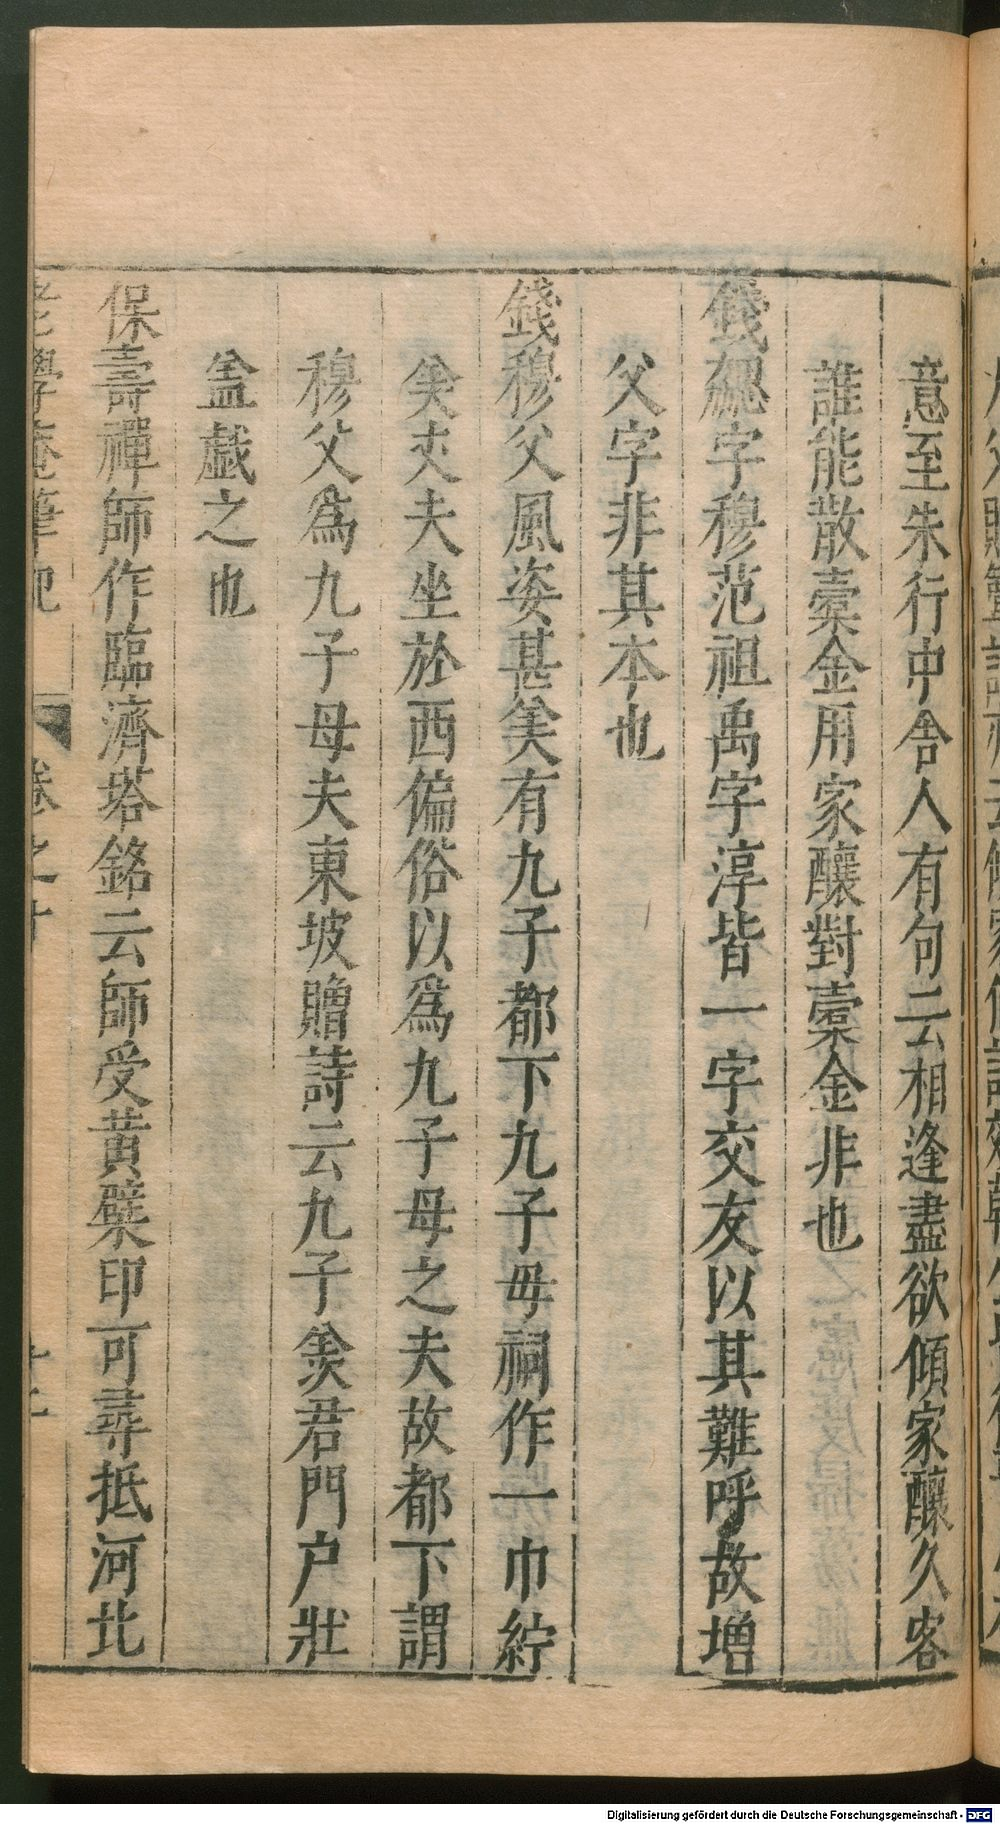 意至朱行中舍人有句云相逢盡欲傾家釀久客
誰能散橐金用家釀對橐金非也
錢勰字穆范祖禹字淳皆一字交友以其難呼故增
父字非其本也
錢穆父風姿甚美有九子都下九子母祠作一巾紵
美丈夫坐於西偏俗以為九子母之夫故都下謂
穆父為九子母夫東坡贈詩云九子羨君門户壯
盖戯之也
保壽禪師作臨濟塔銘云師受黃檗印可尋抵河北
老學庵筆記 卷之十
Digitalisierung gefördert durch die Deutsche Forschungsgemeinschaft - DFG